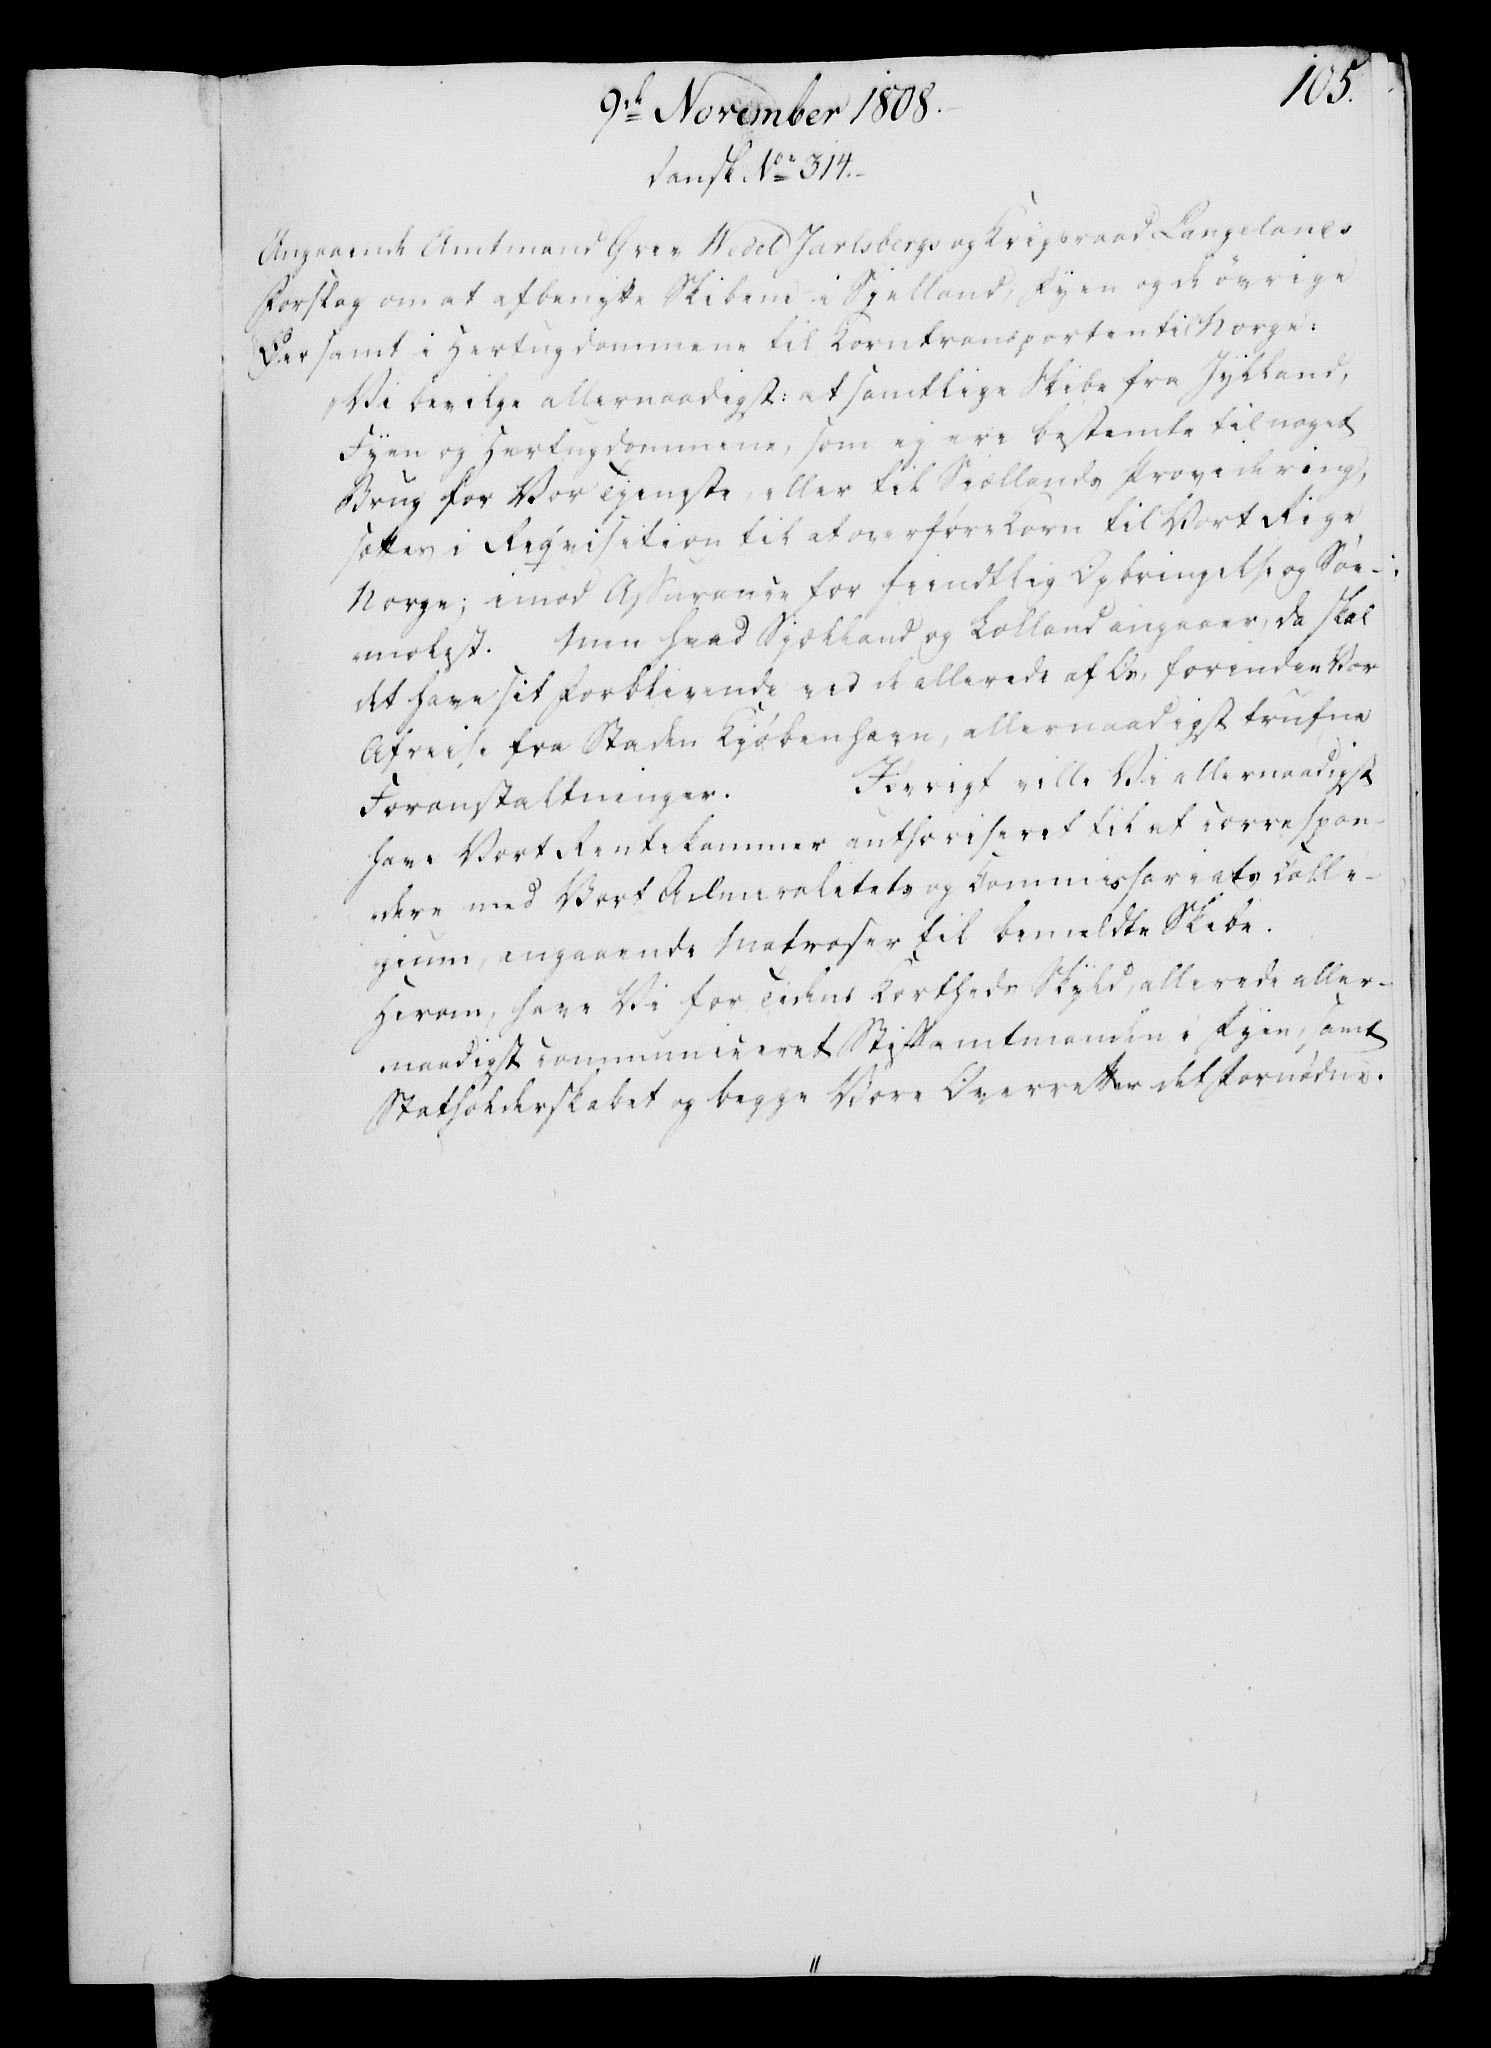 105.
9de November 1808.
dansk No 314.
Angaaende Amtmand Grev Wedel Jarlsbergs og Krigsraad Langelands
Forslag om at afbenytte Skibene i Sjelland, Fyen og de øvrige
Øer samt i Hertugdømmene til Korntransporten til Norge:
Vi bevilge allernaadigst: at samtlige Skibe fra Jylland,
Fyen og Hertugdømmene, som ej ere bestemte til noget
Brug for Vor Tjeneste, eller til Siællands Providering,
sættes i Reqvisition til at overføre Korn til Vort Rige
Norge; imod Assurance for fiendtlig Opbringelse og Søe-
molest. Men hvad Sjælland og Lolland angaaer, da skal
det have sit Forblivende ved de allerede af Os, forinden Vor
Afreise fra Staden Kjøbenhavn, allernaadigst trufne
Foranstaltninger. Iøvrigt ville Vi allernaadigst
have Vort Rentekammer authoriseret til at correspon-
dere med Vort Admiralitets og Commissariats Colle-
gium, angaaende Matroser til bemeldte Skibe.
Herom, have Vi for Tidens Kortheds Skyld, allerede aller-
naadigst communiceret Stiftamtmanden i Fyen, samt
Statholderskabet og begge Vore Overretter det fornødne.